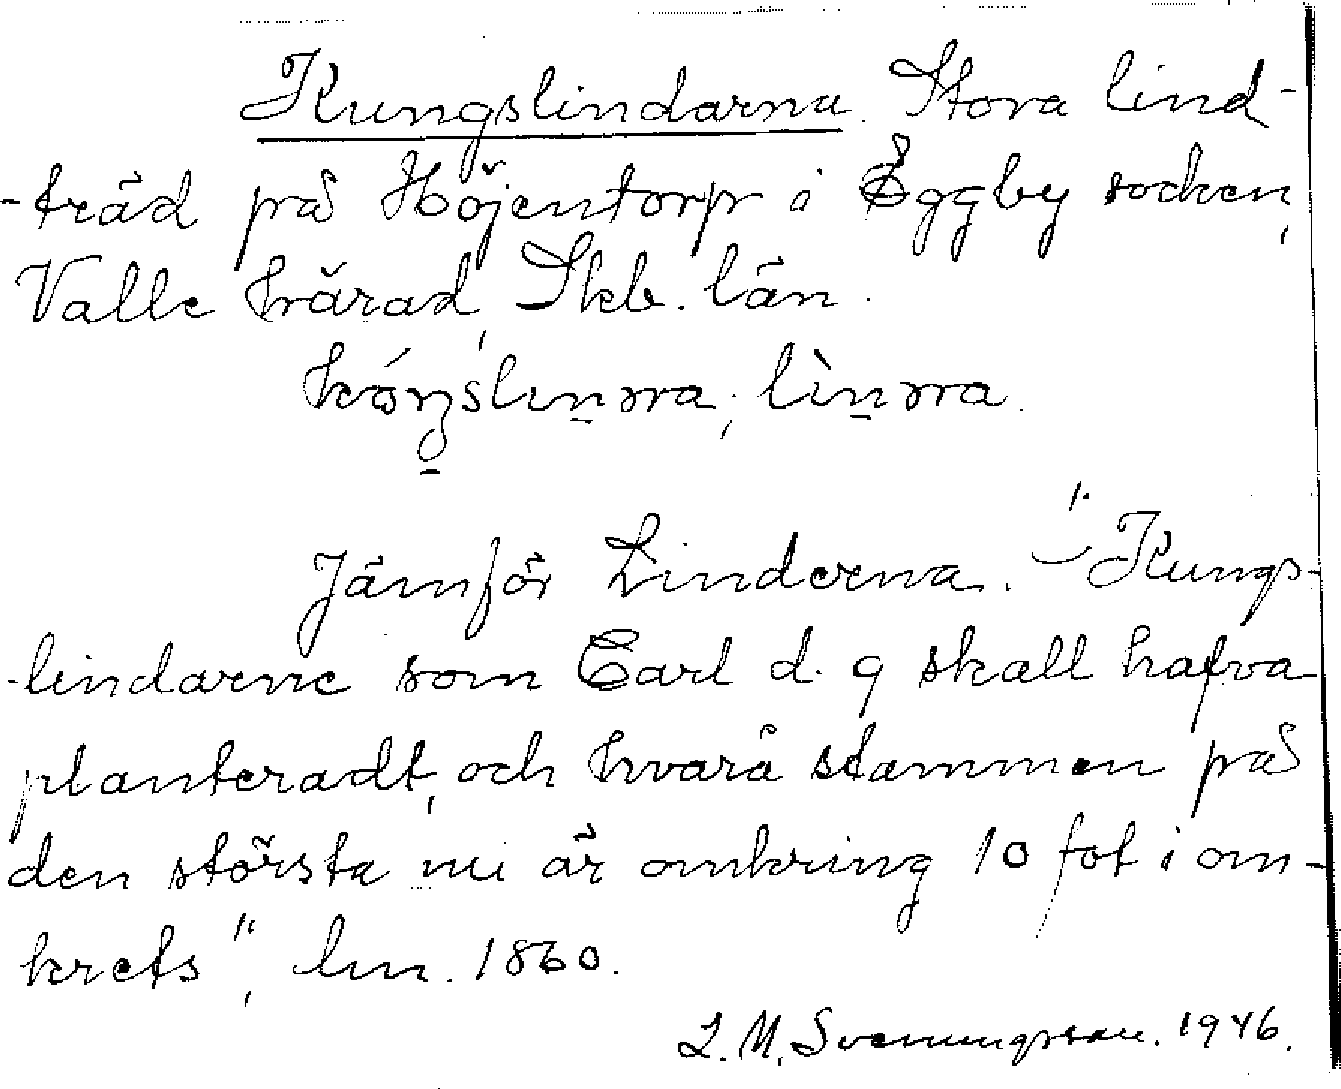 Kungslindarna. Stora lind-
-träd på Höjentorp i Eggby socken,
Valle härad, Skb. län.
lìn̠ṉa.
Jämför Linderna. "Kungs-
-lindarne som Carl d. 9 skall hafva
planteradt, och hvarå stammen på
den största nu är omkring 10 fot i om-
krets", Ln. 1860.
L. M. Svenungsson. 1946.